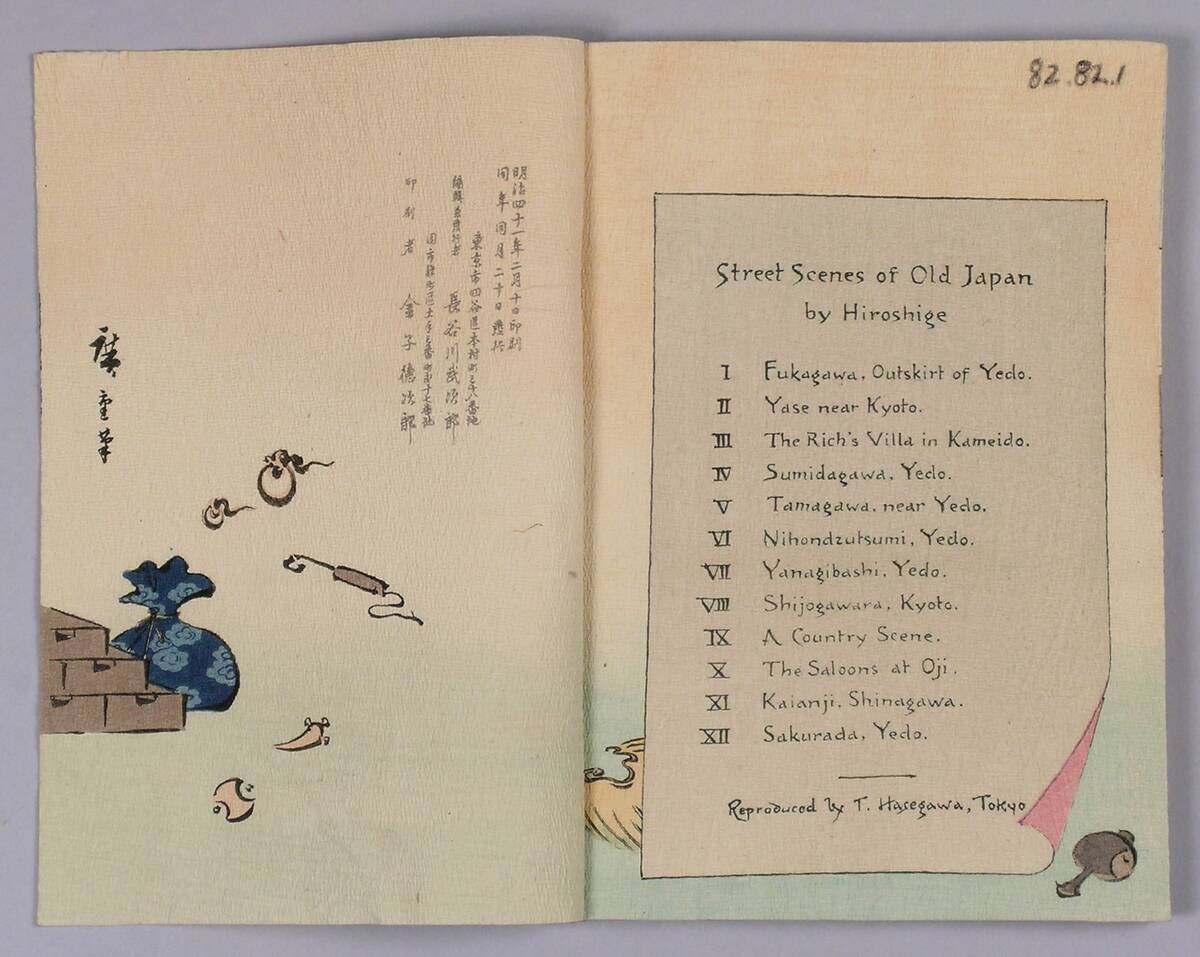 明治四十一年二月十日印刷
同年同月二十日發行
東京市四谷區本村町三十八番地
編輯並發行者 長谷川武次郎
印刷者 金子德次郎
廣重筆
82.82.1
Street Scenes of Old Japan
by Hiroshige
I Fukagawa, Outskirt of Yedo.
II Yase near Kyoto.
III The Rich's Villa in Kameido.
IV Sumidagawa, Yedo.
V Tamagawa, near Yedo.
VI Nihondzutsumi, Yedo.
VII Yanagibashi, Yedo.
VIII Shijogawara, Kyoto.
IX A Country Scene.
X The Saloons at Oji.
XI Kaianji, Shinagawa.
XII Sakurada, Yedo.
Reproduced by T. Hasegawa, Tokyo